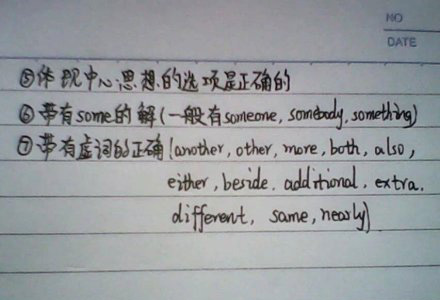 NO
DATE
⑤体现中心思想的选项是正确的
⑥带有some的解(一般有someone, somebody, something)
⑦带有虚词的正确(another, other, more, both, also,
either, beside, additional, extra,
different, same, nearly)